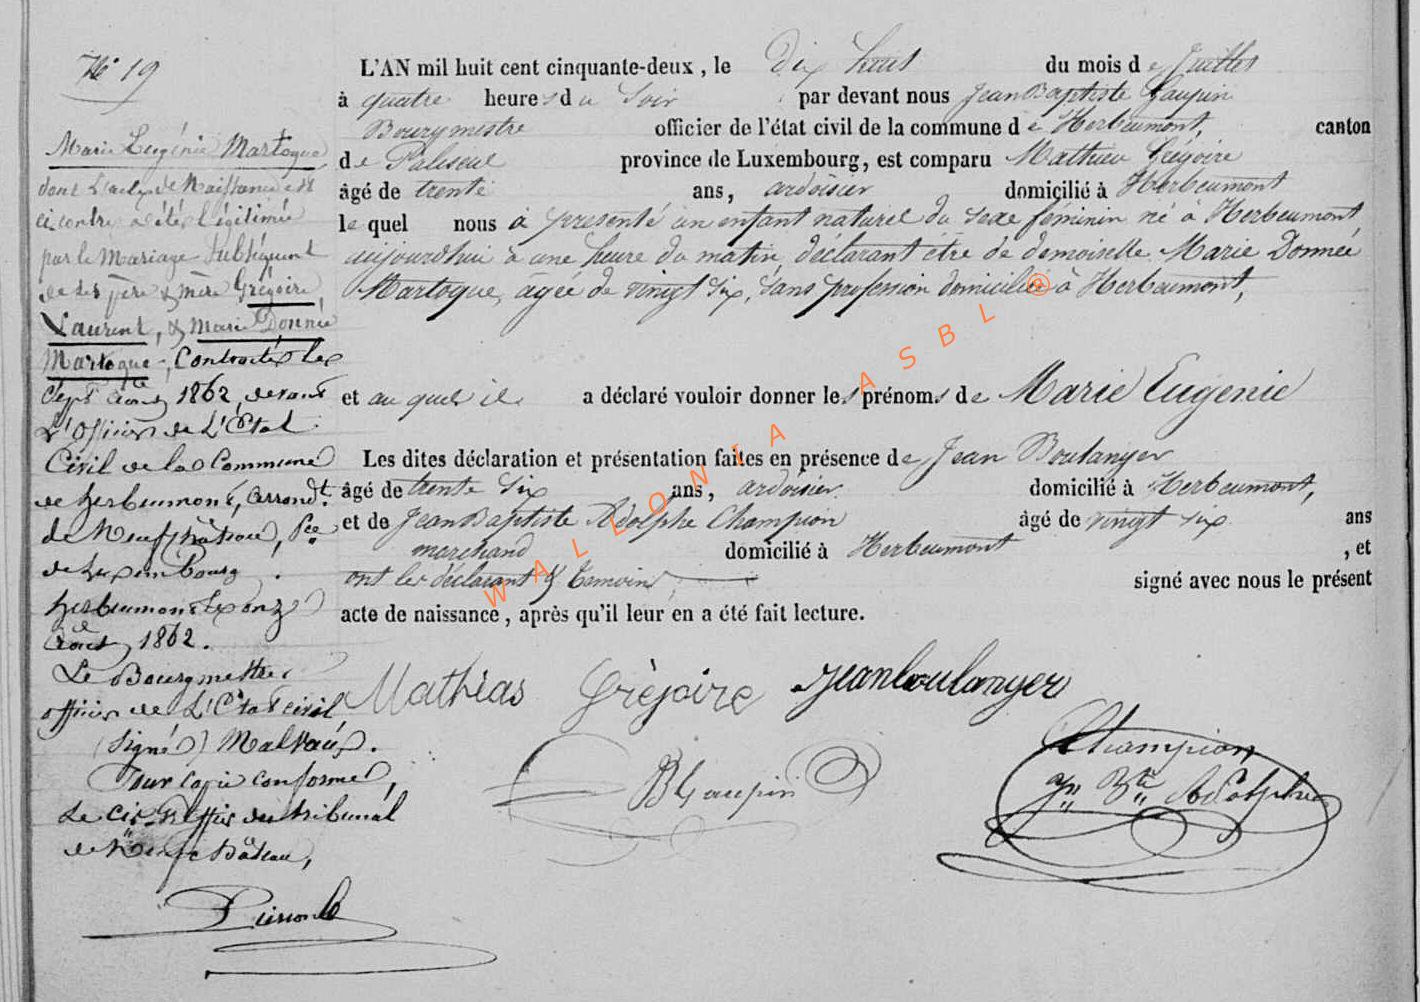 N° 19
Marie Eugénie Martoque,
dont l'acte de Naissance est
ci contre a été légitimée
par le Mariage Subséquent
de ses père & mère Grégoire,
Laurent, & Marie Donnée
Martoque, Contracté le
sept août 1862, devant
L'Officier de L'Etat
Civil de la Commune
de herbeumont, arrondt.
de Neufchâteau, Pce.
de Luxembourg.
herbeumont le onze
août 1862.
Le Bourgmestre
officier de L'Etat civil
(Signé)
Pour copie conforme,
Le Greffier du tribunal
de Neufchâteau,
L'AN mil huit cent cinquante-deux, le Dix huit du mois de Juillet
à quatre heures du soir par devant nous Jean Baptiste Gaupin
Bourgmestre officier de l'état civil de la commune de Herbeumont, canton
de Paliseul province de Luxembourg, est comparu Mathieu Grégoire
âgé de trente ans, ardoisier domicilié à Herbeumont
le quel nous a présenté un enfant naturel du sexe féminin né à Herbeumont
aujourdhui à une heure du matin déclarant être de demoiselle Marie Donnée
Martoque, agée de vingt six, sans profession domiciliée à Herbeumont,
et auquel il a déclaré vouloir donner les prénoms de Marie Eugénie
Les dites déclaration et présentation faites en présence de Jean Boulanger
âgé de trente six ans, ardoisier domicilié à Herbeumont,
et de Jean Baptiste Adolphe Champion âgé de vingt six ans
marchand domicilié à Herbeumont , et
ont les déclarant & temoins signé avec nous le présent
acte de naissance, après qu'il leur en a été fait lecture.
Mathias Grégoire jean boulanger
Champion
JB Gaupin Jn Bte Adolphe
WALLONIA ASBL ®